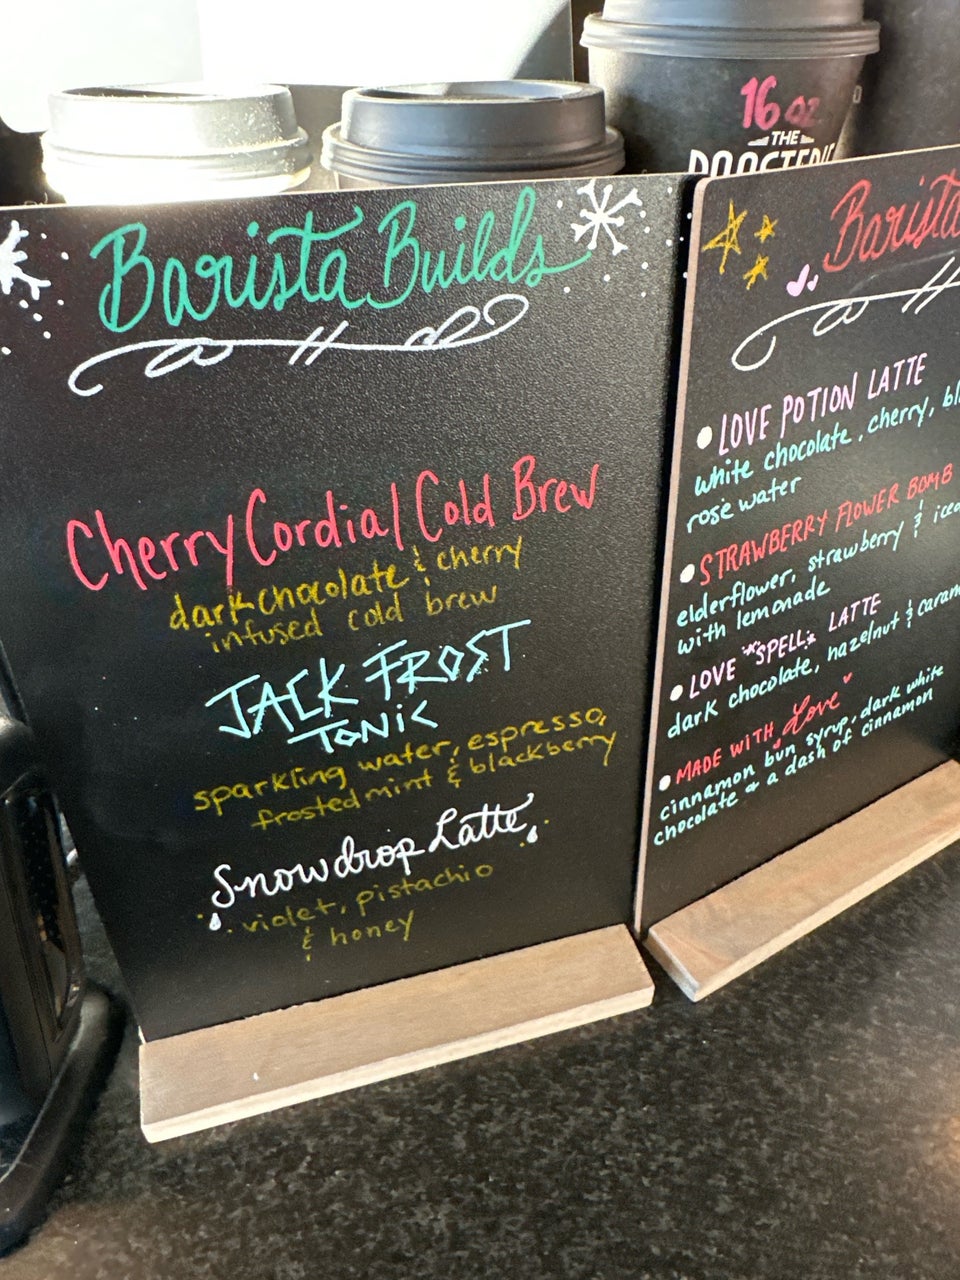 16 oz
THE
Barista Builds
Cherry Cordial Cold Brew
dark chocolate & cherry
infused cold brew
JACK FROST
TONIC
sparkling water, espresso,
frosted mint & blackberry
Snowdrop Latte
violet, pistachio
& honey
Barista
LOVE POTION LATTE
white chocolate, cherry,
rose water
STRAWBERRY FLOWER BOMB
elderflower, strawberry & iced
with lemonade
LOVE "SPELL" LATTE
dark chocolate, hazelnut &
MADE WITH Love
cinnamon bun syrup, dark white
chocolate & a dash of cinnamon